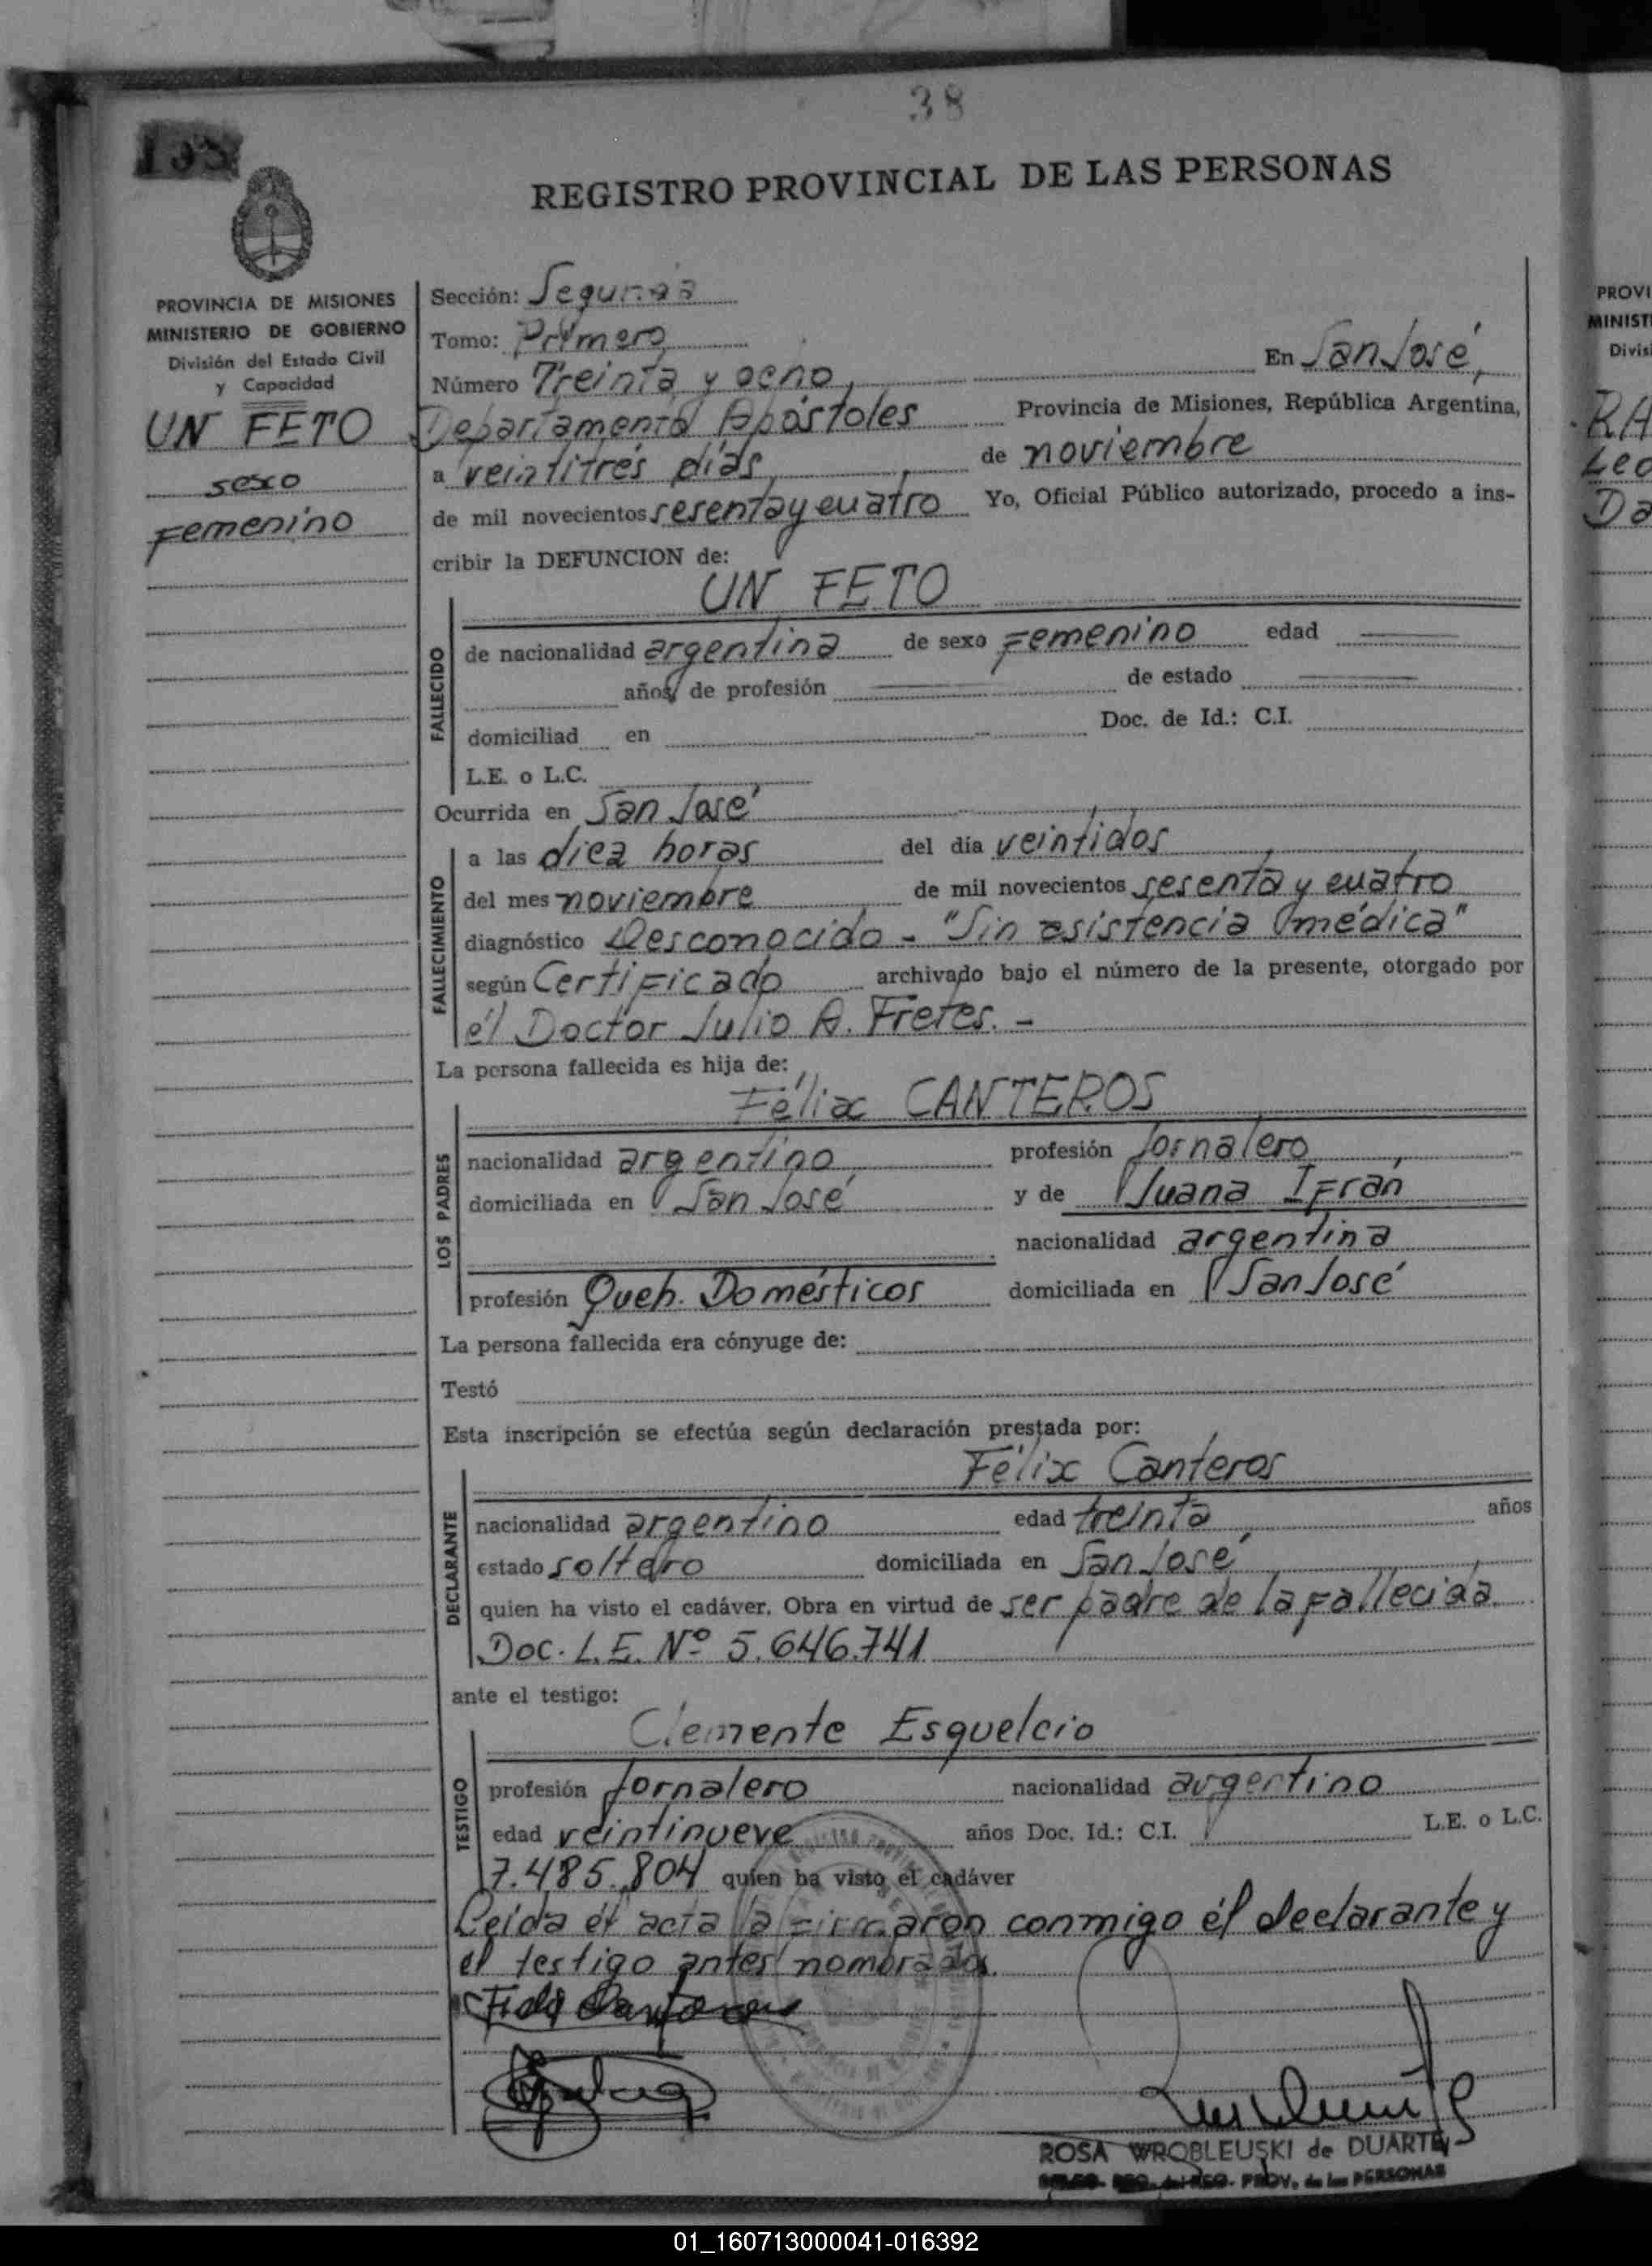 38
138
REGISTRO PROVINCIAL DE LAS PERSONAS
PROVINCIA DE MISIONES
MINISTERIO DE GOBIERNO
División del Estado Civil
y Capacidad
UN FETO
sexo
Femenino
Sección: Segunda
Tomo: Primero
Número Treinta y ocho, En San José,
Departamento Apóstoles Provincia de Misiones, República Argentina,
a veintitrés días de noviembre
de mil novecientos sesenta y cuatro Yo, Oficial Público autorizado, procedo a ins-
cribir la DEFUNCION de:
UN FETO
FALLECIDO
de nacionalidad argentina de sexo Femenino edad
años, de profesión de estado
domiciliad en Doc. de Id.: C.I.
L.E. o L.C.
Ocurrida en San José
FALLECIMIENTO
a las diez horas del día veintidos
del mes noviembre de mil novecientos sesenta y cuatro
diagnóstico Desconocido - "Sin asistencia médica"
según Certificado archivado bajo el número de la presente, otorgado por
él Doctor Julio A. Fretes. -
La persona fallecida es hija de:
Félix CANTEROS
LOS PADRES
nacionalidad argentino profesión Jornalero
domiciliada en San José y de Juana Ifrán
nacionalidad argentina
profesión Queh. Domésticos domiciliada en San José
La persona fallecida era cónyuge de:
Testó
Esta inscripción se efectúa según declaración prestada por:
Félix Canteros
DECLARANTE
nacionalidad argentino edad treinta años
estado soltero domiciliada en San José
quien ha visto el cadáver. Obra en virtud de ser padre de la fallecida.
Doc. L.E. Nº 5.646.741
ante el testigo:
Clemente Esquelcio
TESTIGO
profesión Jornalero nacionalidad argentino
edad veintinueve años Doc. Id.: C.I. L.E. o L.C.
7.485.804 quien ha visto el cadáver
Leída el acta la firmaron conmigo él declarante y
el testigo antes nombrados.
ROSA WROBLEUSKI de DUARTE
REG. PROV. de las PERSONAS
PROVI
MINIST
Divis
RA
Leo
Da
01_160713000041-016392